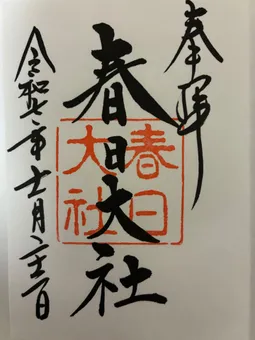 奉拝
春日大社
春日
大社
令和年十一月日